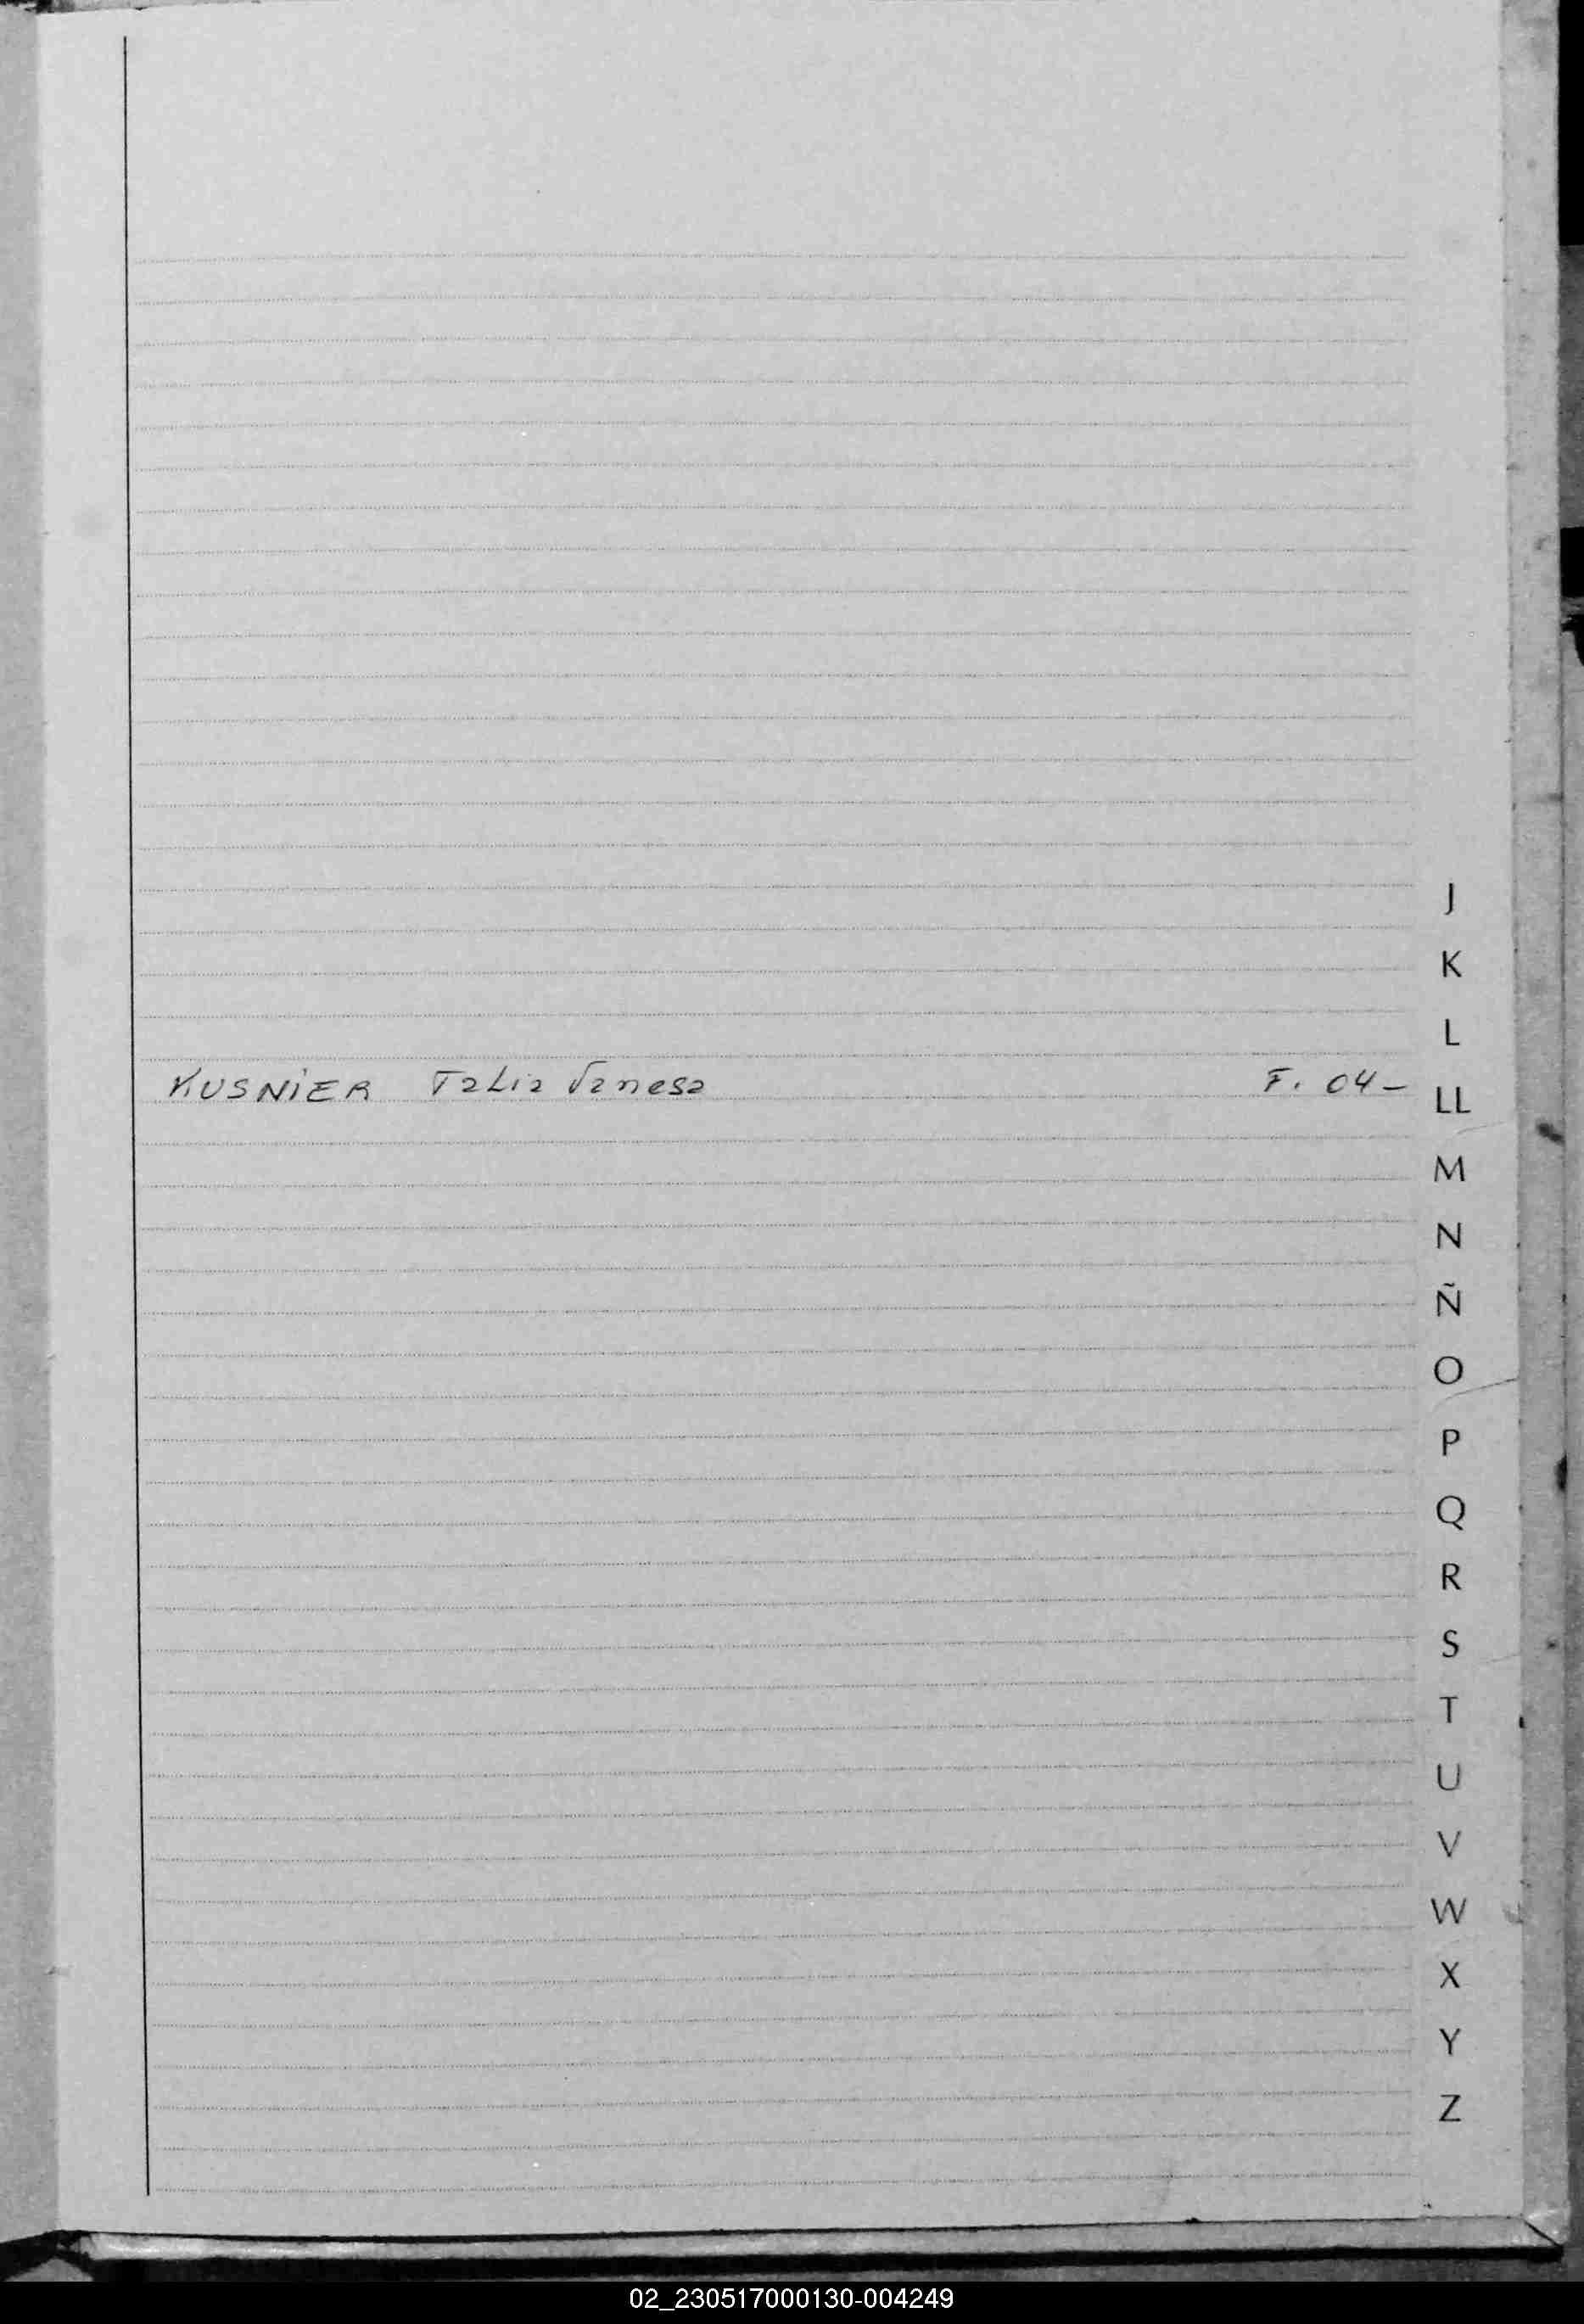 J
K
L
KUSNiER Talia Vanesa F. 04-
LL
M
N
Ñ
O
P
Q
R
S
T
U
V
W
X
Y
Z
02_230517000130-004249